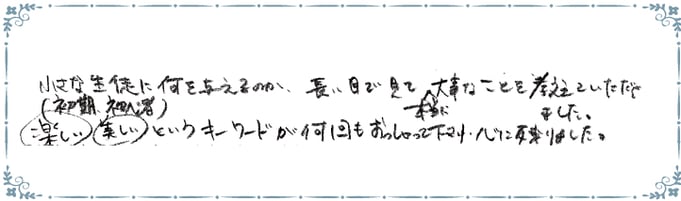 小さな生徒に何を与えるのか、長い目で見て本当に大事なことを教えていただき
(初期、初心者)
ました。
楽しい 美しい というキーワードが何回もおっしゃって下さり、心に残りました。